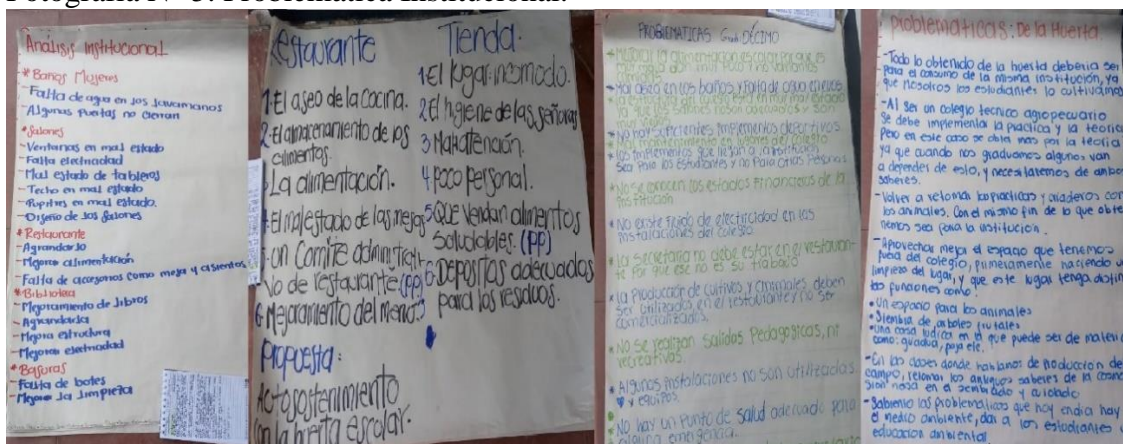 Fotografía N° 3. Problemática Institucional.
Análisis Institucional
* Baños Mujeres
- Falta de agua en los lavamanos
- Algunas Puertas no Cierran
* Salones
- Ventanas en mal estado
- Falta electricidad
- Mal estado de tableros
- Techo en mal estado.
- Pupitres en mal estado.
- Diseño de los salones
* Restaurante
- Agrandarlo
- Mejorar alimentación
- Falta de accesorios como mesa y asientos
* Biblioteca
- Mejoramiento de libros
- Agrandarla
- Mejora estructura
- Mejorar electricidad
* Basuras
- Falta de botes
- Mejorar la limpieza
Restaurante
1- El aseo de la cocina.
2- El almacenamiento de los
alimentos.
La alimentación.
4- El mal estado de las mesas
un Comité administrati-
vo de restaurante. (PP)
6- Mejoramiento del menú
Propuesta:
Autosostenimiento
con la huerta escolar.
Tienda.
1 El lugar incomodo.
2 El higiene de las señoras
3 Mala atención.
4 poco personal.
5 Que vendan alimentos
saludables. (PP)
6 Depositos adecuados
para los residuos.
PROBLEMATICAS Grado: DÉCIMO
* Mejorar la alimentación escolar porque es
* Mal aseo en los baños y Falta de agua en ellos
* No hay suficientes implementos deportivos
* los implementos que llegan a institución
Sea Para los estudiantes y no Para otras Personas
* No se conocen los estados Financieros de la
institución
* No existe fluido de electricidad en las
instalaciones del colegio.
* la secretaria no debe estar en el restauran-
te Por que ese no es su trabajo
* la Producción de cultivos y animales deben
ser utilizados en el restaurante y no ser
comercializados.
* No se realizan salidas Pedagogicas, ni
recreativas.
* Algunas instalaciones no son utilizadas.
y equipos.
* No hay un Punto de salud adecuado para
alguna emergencia.
Problematicas: De la Huerta.
- Todo lo obtenido de la huerta deberia ser
para el consumo de la misma institución, ya
que nosotros los estudiantes lo cultivamos
- Al ser un colegio tecnico agropecuario
se debe implementar la practica y la teoria
Pero en este caso se opta mas por la teoria
ya que cuando nos graduamos algunos van
a depender de esto, y necesitaremos de ambos
saberes.
- Volver a retomar las practicas y criaderos con
los animales. Con el mismo fin de lo que obte
nemos sea para la institución.
- Aprovechar mejor el espacio que tenemos
fuera del colegio, primeramente haciendo u
limpieza del lugar, y que este lugar tenga distin
tas funciones como:
* Un espacio para los animales
* Siembra de arboles frutales
* Una casa ludica en la que puede ser de materia
como: guadua, paja etc.
- En las clases donde hablamos de Producción de
campo, retomar los antiguos saberes de la cosmo
sion nasa en el sembrado y cuidado
- Sabiendo las problematicas que hoy en dia hay
el medio ambiente, dar a los estudiantes u
educacion ambiental